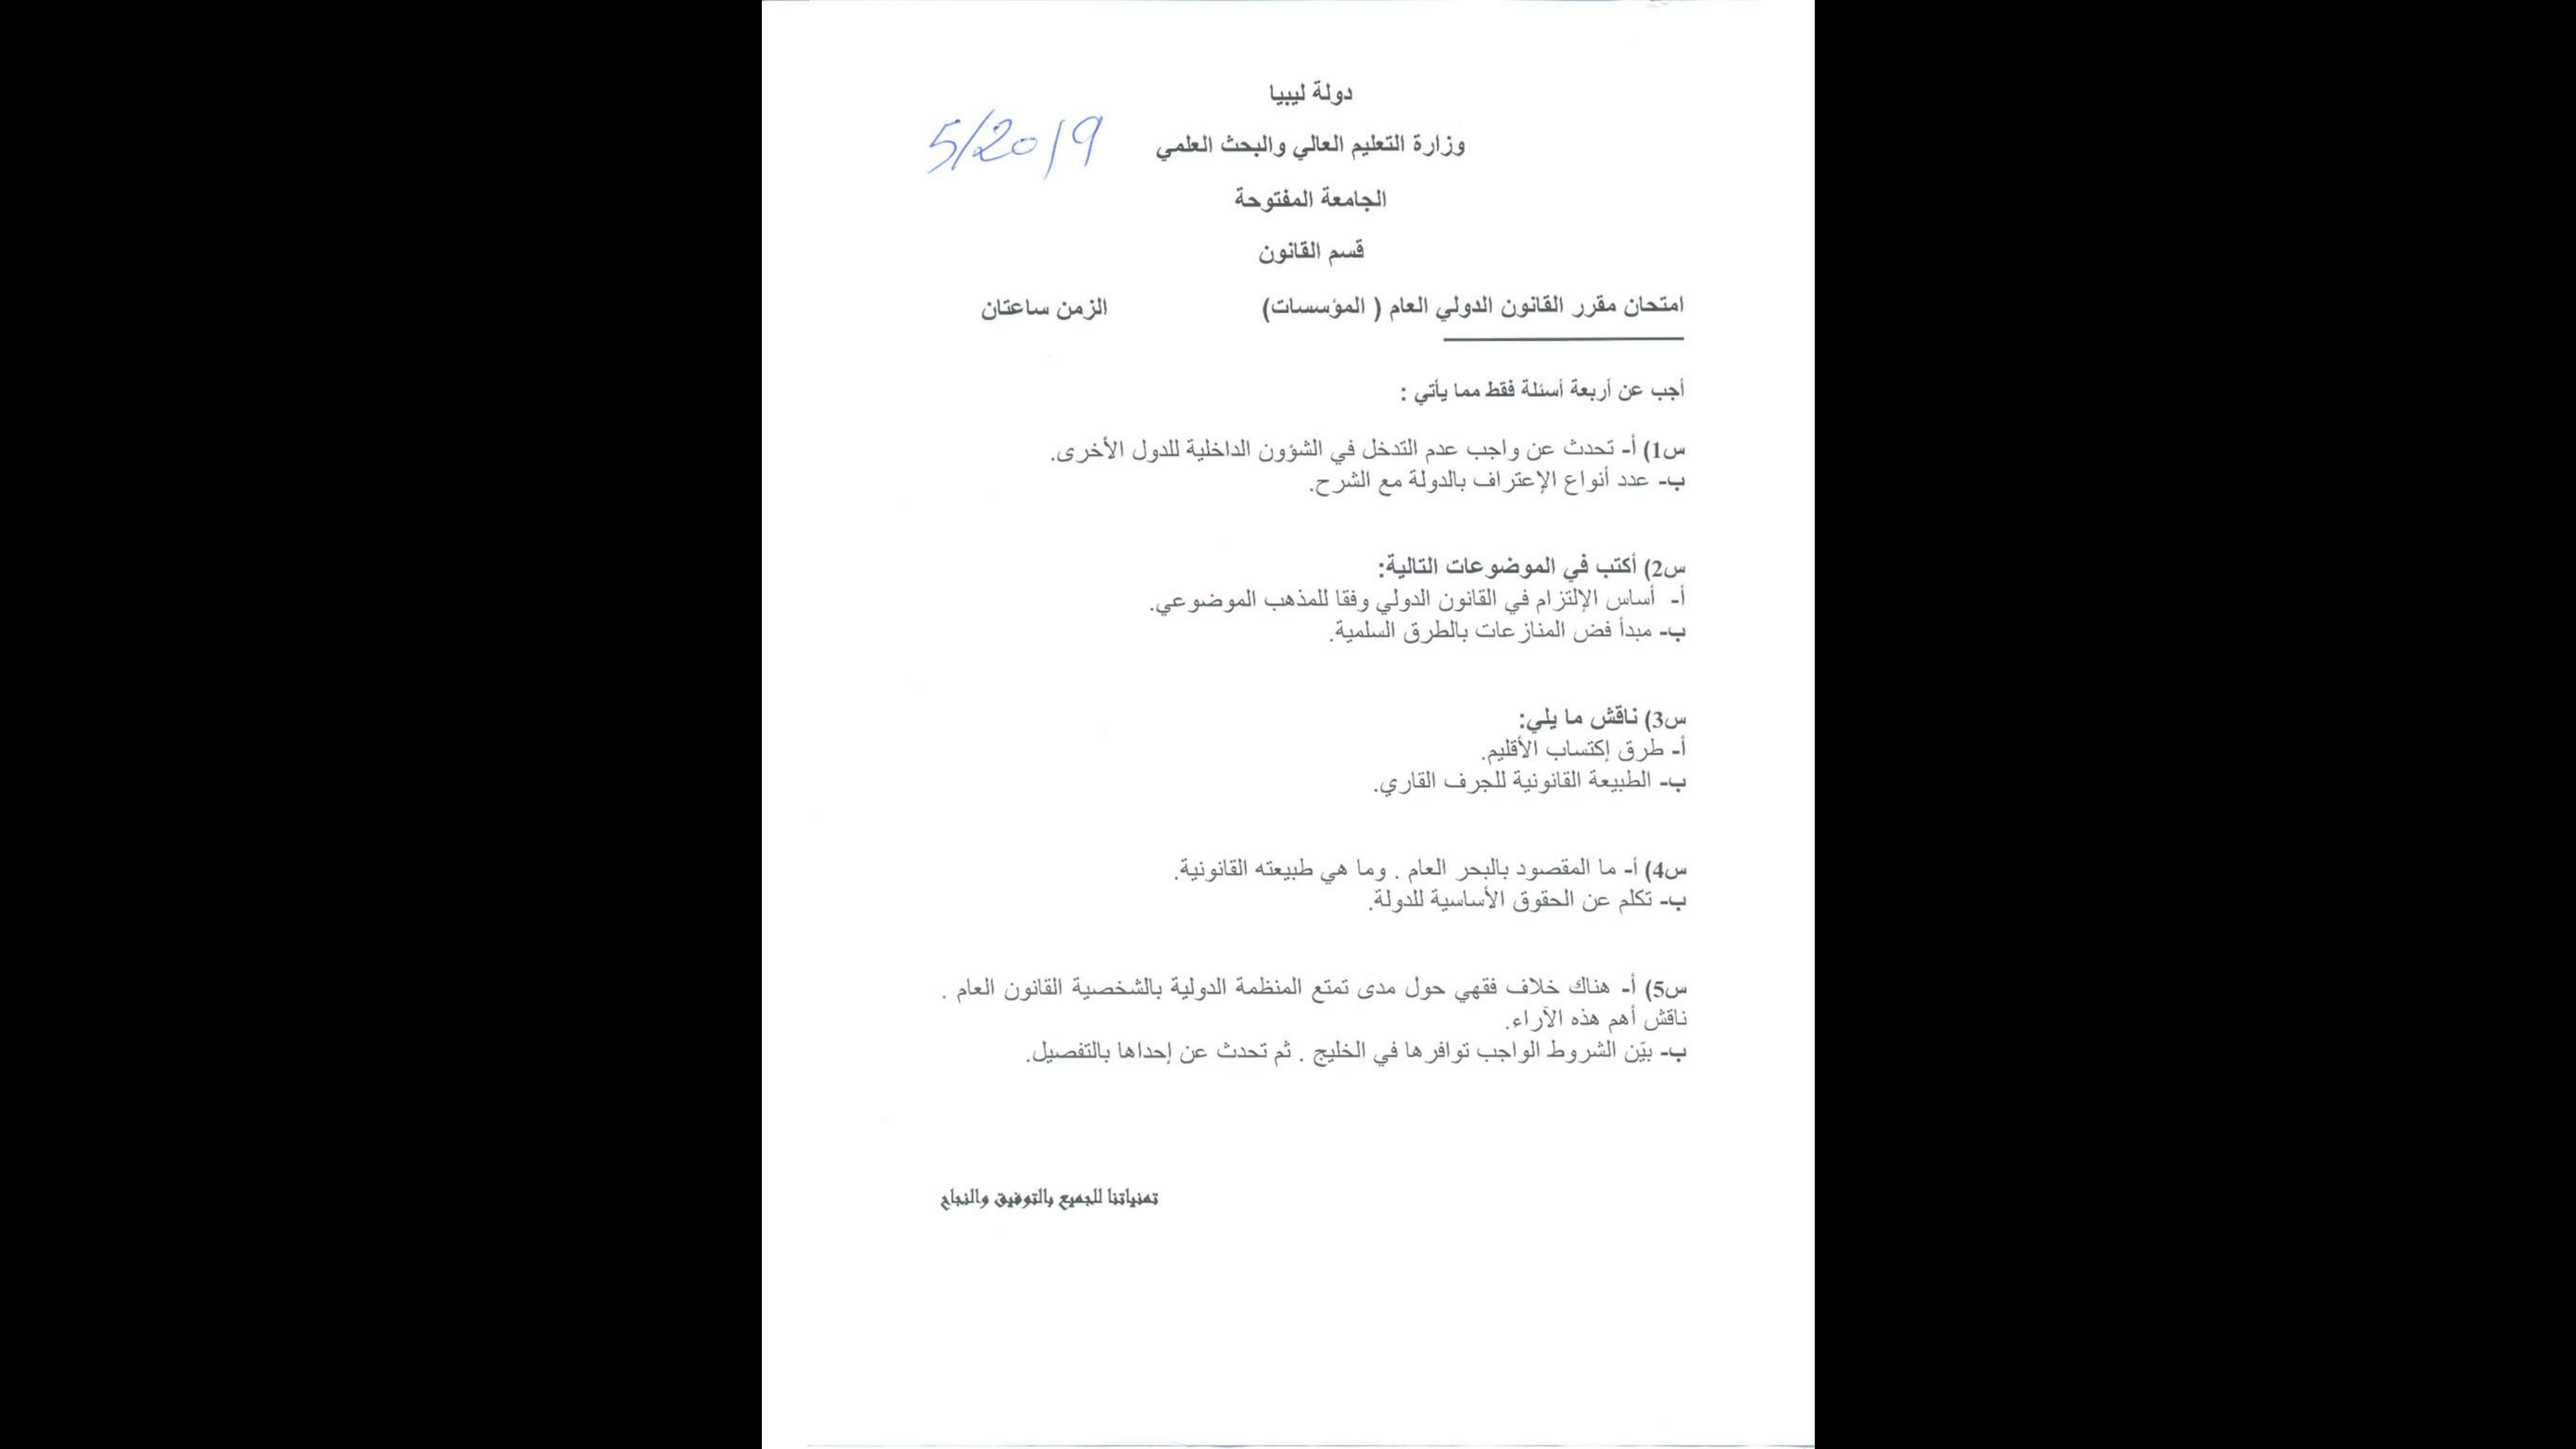 دولة ليبيا
5/2019
وزارة التعليم العالي والبحث العلمي
الجامعة المفتوحة
قسم القانون
امتحان مقرر القانون الدولي العام ( المؤسسات) الزمن ساعتان
أجب عن أربعة أسئلة فقط مما يأتي :
س1) أ- تحدث عن واجب عدم التدخل في الشؤون الداخلية للدول الأخرى.
ب- عدد أنواع الإعتراف بالدولة مع الشرح.
س2) أكتب في الموضوعات التالية:
أ- أساس الإلتزام في القانون الدولي وفقا للمذهب الموضوعي.
ب- مبدأ فض المنازعات بالطرق السلمية.
س3) ناقش ما يلي:
أ- طرق إكتساب الأقليم.
ب- الطبيعة القانونية للجرف القاري.
س4) أ- ما المقصود بالبحر العام . وما هي طبيعته القانونية.
ب- تكلم عن الحقوق الأساسية للدولة.
س5) أ- هناك خلاف فقهي حول مدى تمتع المنظمة الدولية بالشخصية القانون العام .
ناقش أهم هذه الآراء.
ب- بيّن الشروط الواجب توافرها في الخليج . ثم تحدث عن إحداها بالتفصيل.
تمنياتنا للجميع بالتوفيق والنجاح